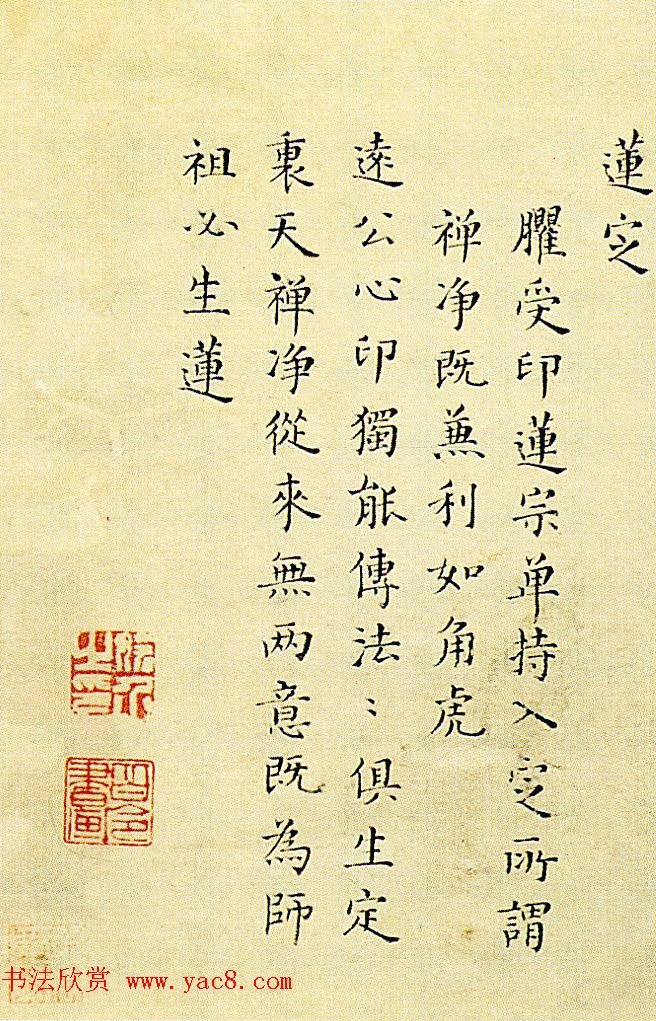 蓮定
臞受印蓮宗单持入定所謂
禅净既兼利如角虎
遠公心印獨能傳法〻俱生定
裏天禅净從來無两意既為師
祖必生蓮
书法欣赏 www.yac8.com